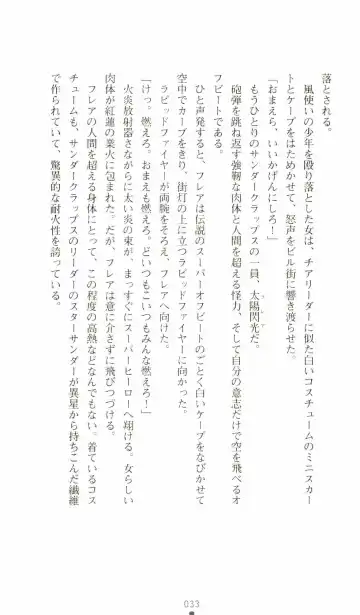 落とされる。
　風使いの少年を殴り落とした女は、チアリーダーに似た白いコスチュームのミニスカー
トとケープをはためかせて、怒声をビル街に響き渡らせた。
「おまえら、いいかげんにしろ！」
　もうひとりのサンダークラップスの一員、太陽閃光だ。
　砲弾を跳ね返す強靭な肉体と人間を超える怪力、そして自分の意志だけで空を飛べるオ
フビートである。
　ひと声発すると、フレアは伝説のスーパーオフビートのごとく白いケープをなびかせて
空中でカーブをきり、街灯の上に立つラピッドファイヤーに向かった。
　ラピッドファイヤーが両腕をそろえ、フレアへ向けた。
「けっ。燃えろ。おまえも燃えろ。どいつもこいつもみんな燃えろ！」
　火炎放射器さながらに太い炎の束が、まっすぐにスーパーヒーローへ翔ける。女らしい
肉体が紅蓮の業火に包まれた。だが、フレアは意に介さずに飛びつづける。
　フレアの人間を超える身体にとって、この程度の高熱などなんでもない。着ているコス
チュームも、サンダークラップスのリーダーのスターサンダーが異星から持ちこんだ繊維
で作られていて、驚異的な耐火性を誇っている。
033